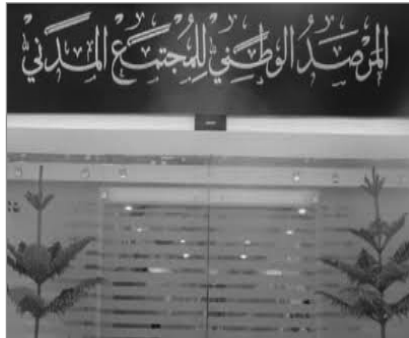 المَرْصَدُ الوَطَنِيُّ لِلْمُجْتَمَعِ المَدَنِيِّ